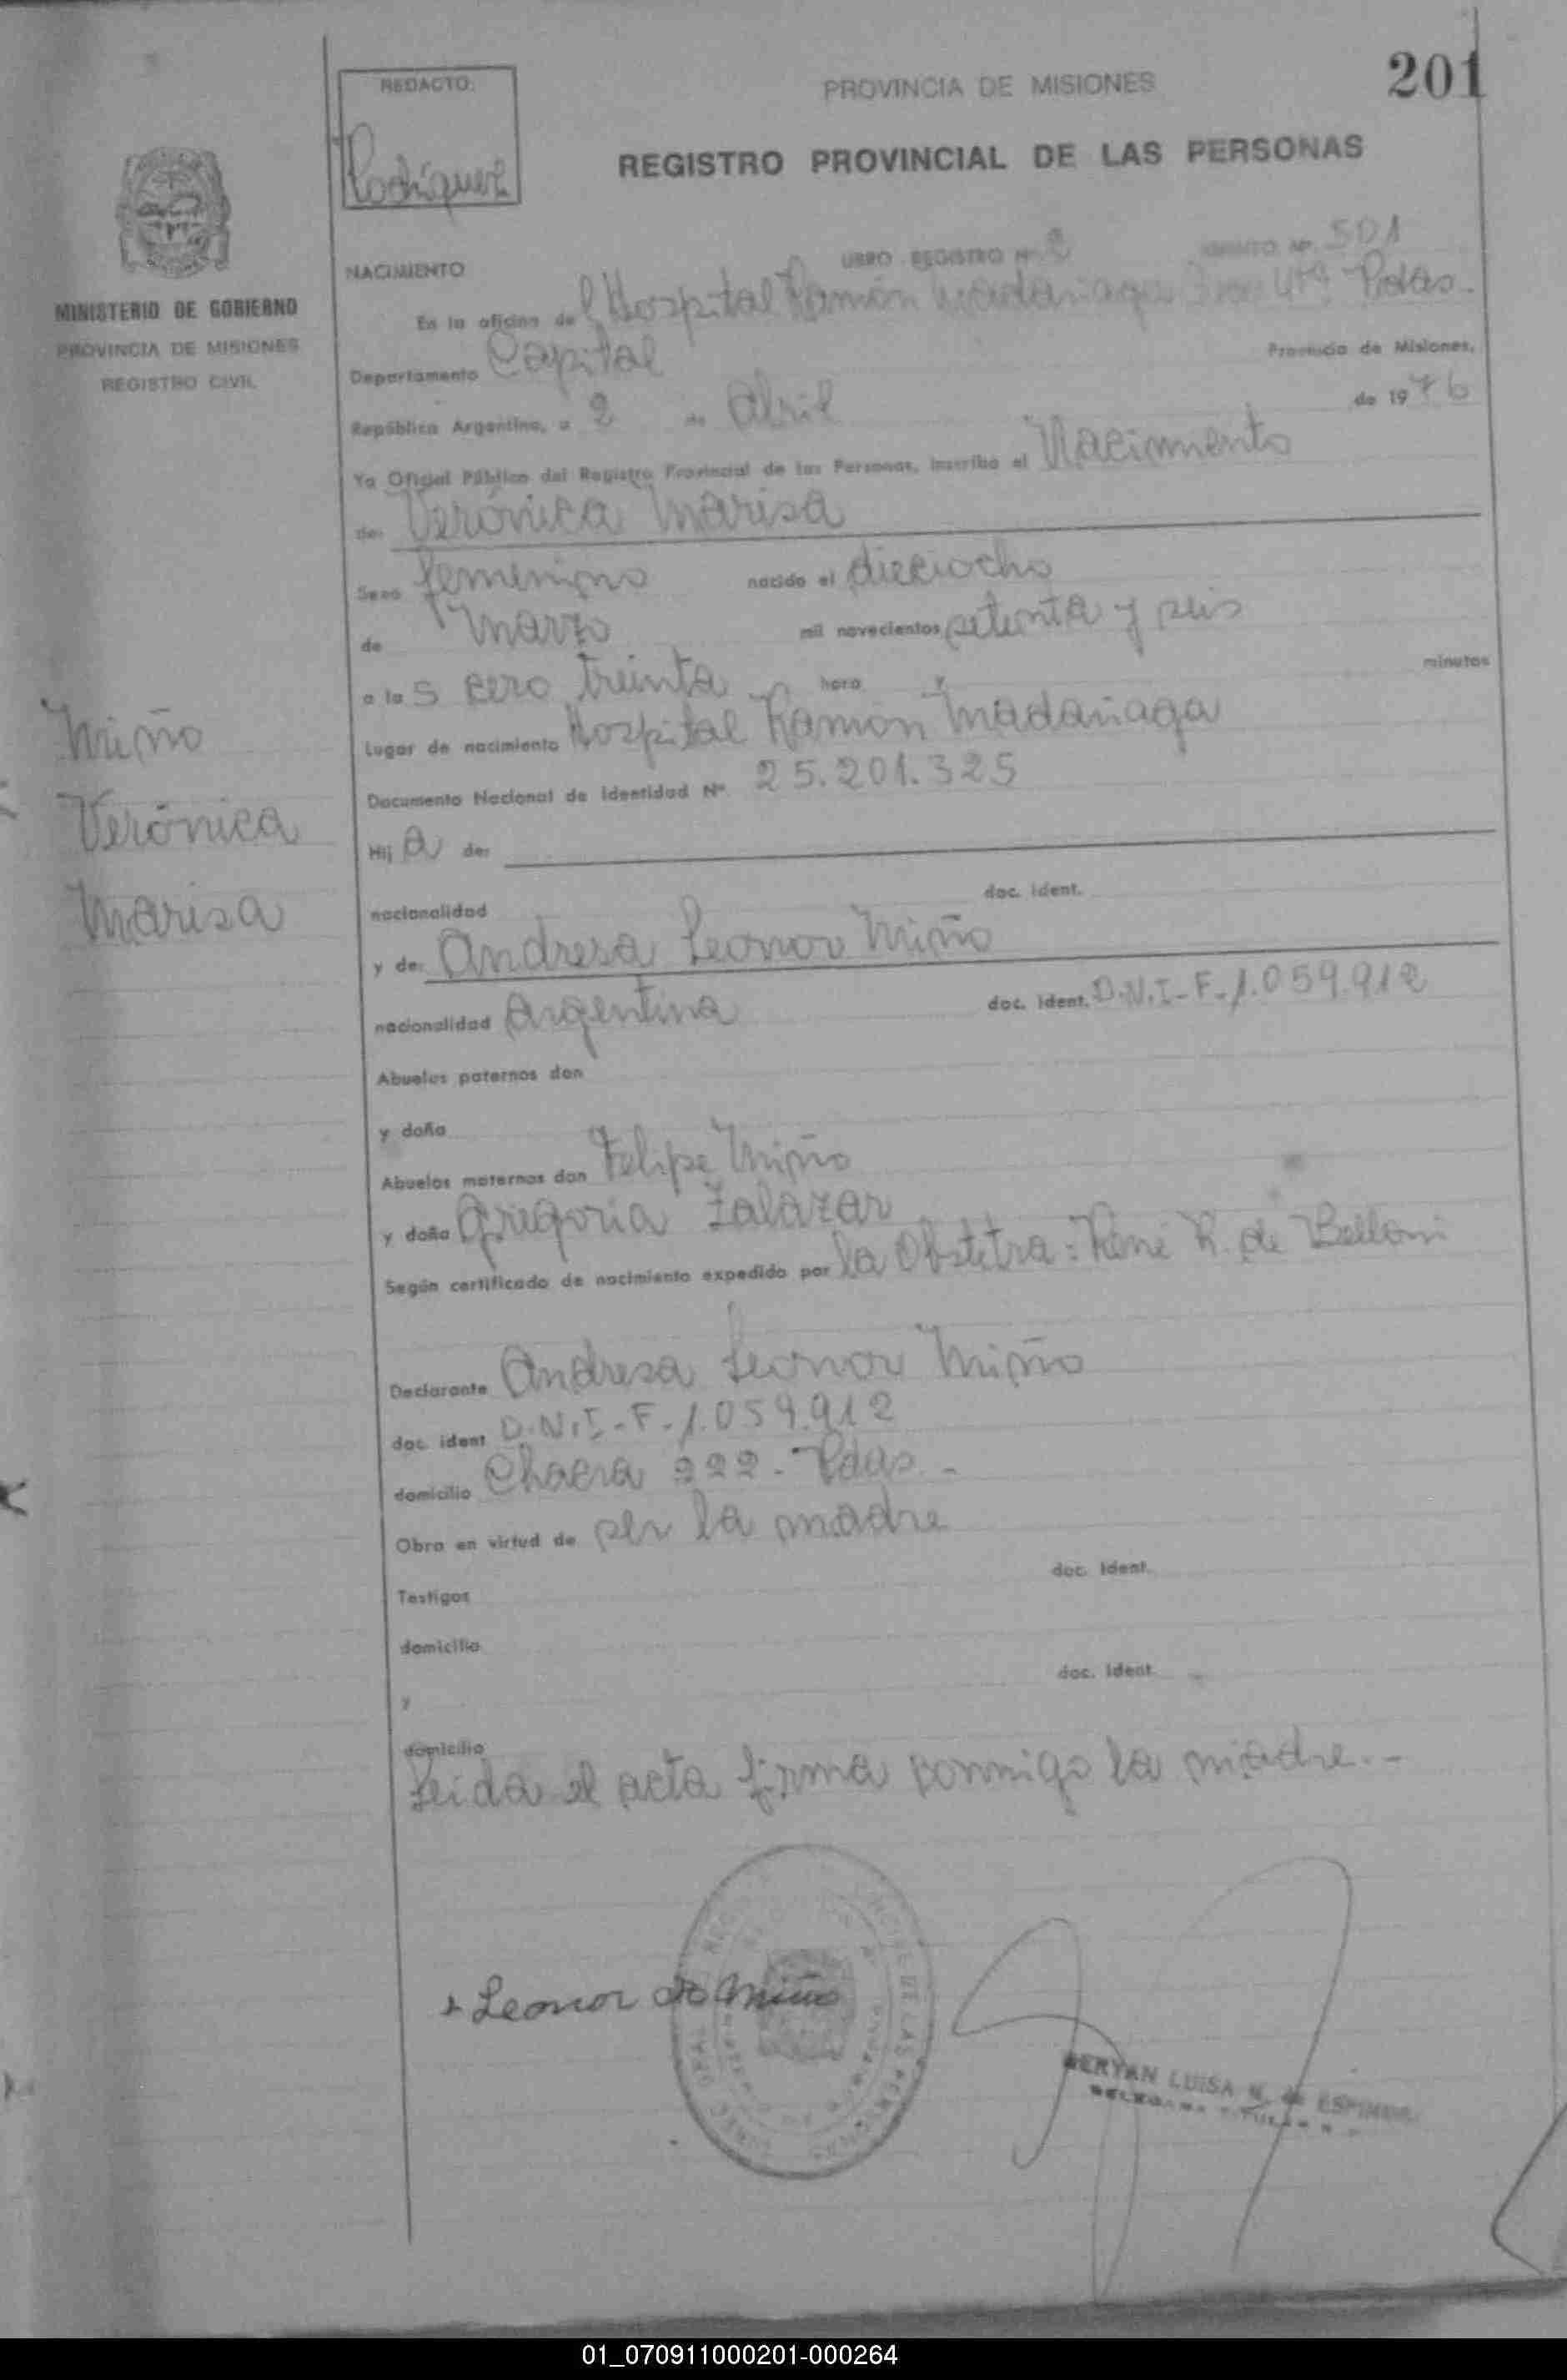 201
REDACTO:
Rodriguez
PROVINCIA DE MISIONES
REGISTRO PROVINCIAL DE LAS PERSONAS
MINISTERIO DE GOBIERNO
PROVINCIA DE MISIONES
REGISTRO CIVIL
NACIMIENTO LIBRO REGISTRO Nº 2 ASIENTO Nº 501
En la oficina del Hospital Ramón Madariaga Pdas.
Departamento Capital Provincia de Misiones,
República Argentina, a 2 de Abril de 1976
Yo Oficial Público del Registro Provincial de las Personas, inscribo el Nacimiento
de: Verónica Marisa
Sexo femenino nacido el dieciocho
de Marzo mil novecientos setenta y seis
a las cero treinta hora y minutos
Lugar de nacimiento Hospital Ramón Madariaga
Documento Nacional de Identidad Nº 25.201.325
Hija de:
nacionalidad doc. ident.
y de: Andresa Leonor Miño
nacionalidad Argentina doc. ident. D.N.I-F-1.059.912
Abuelos paternos don
y doña
Abuelos maternos don Felipe Miño
y doña Gregoria Zalazar
Según certificado de nacimiento expedido por la Obstetra: René R. de Belloni
Declarante Andresa Leonor Miño
doc. ident D.N.I-F-1.059.912
domicilio Chacra 222. Pdas.-
Obra en virtud de ser la madre
Testigos doc. ident.
domicilio
y doc. ident
domicilio
Leida el acta firma conmigo la madre.-
Miño
Verónica
Marisa
Leonor Miño
LUISA
01_070911000201-000264